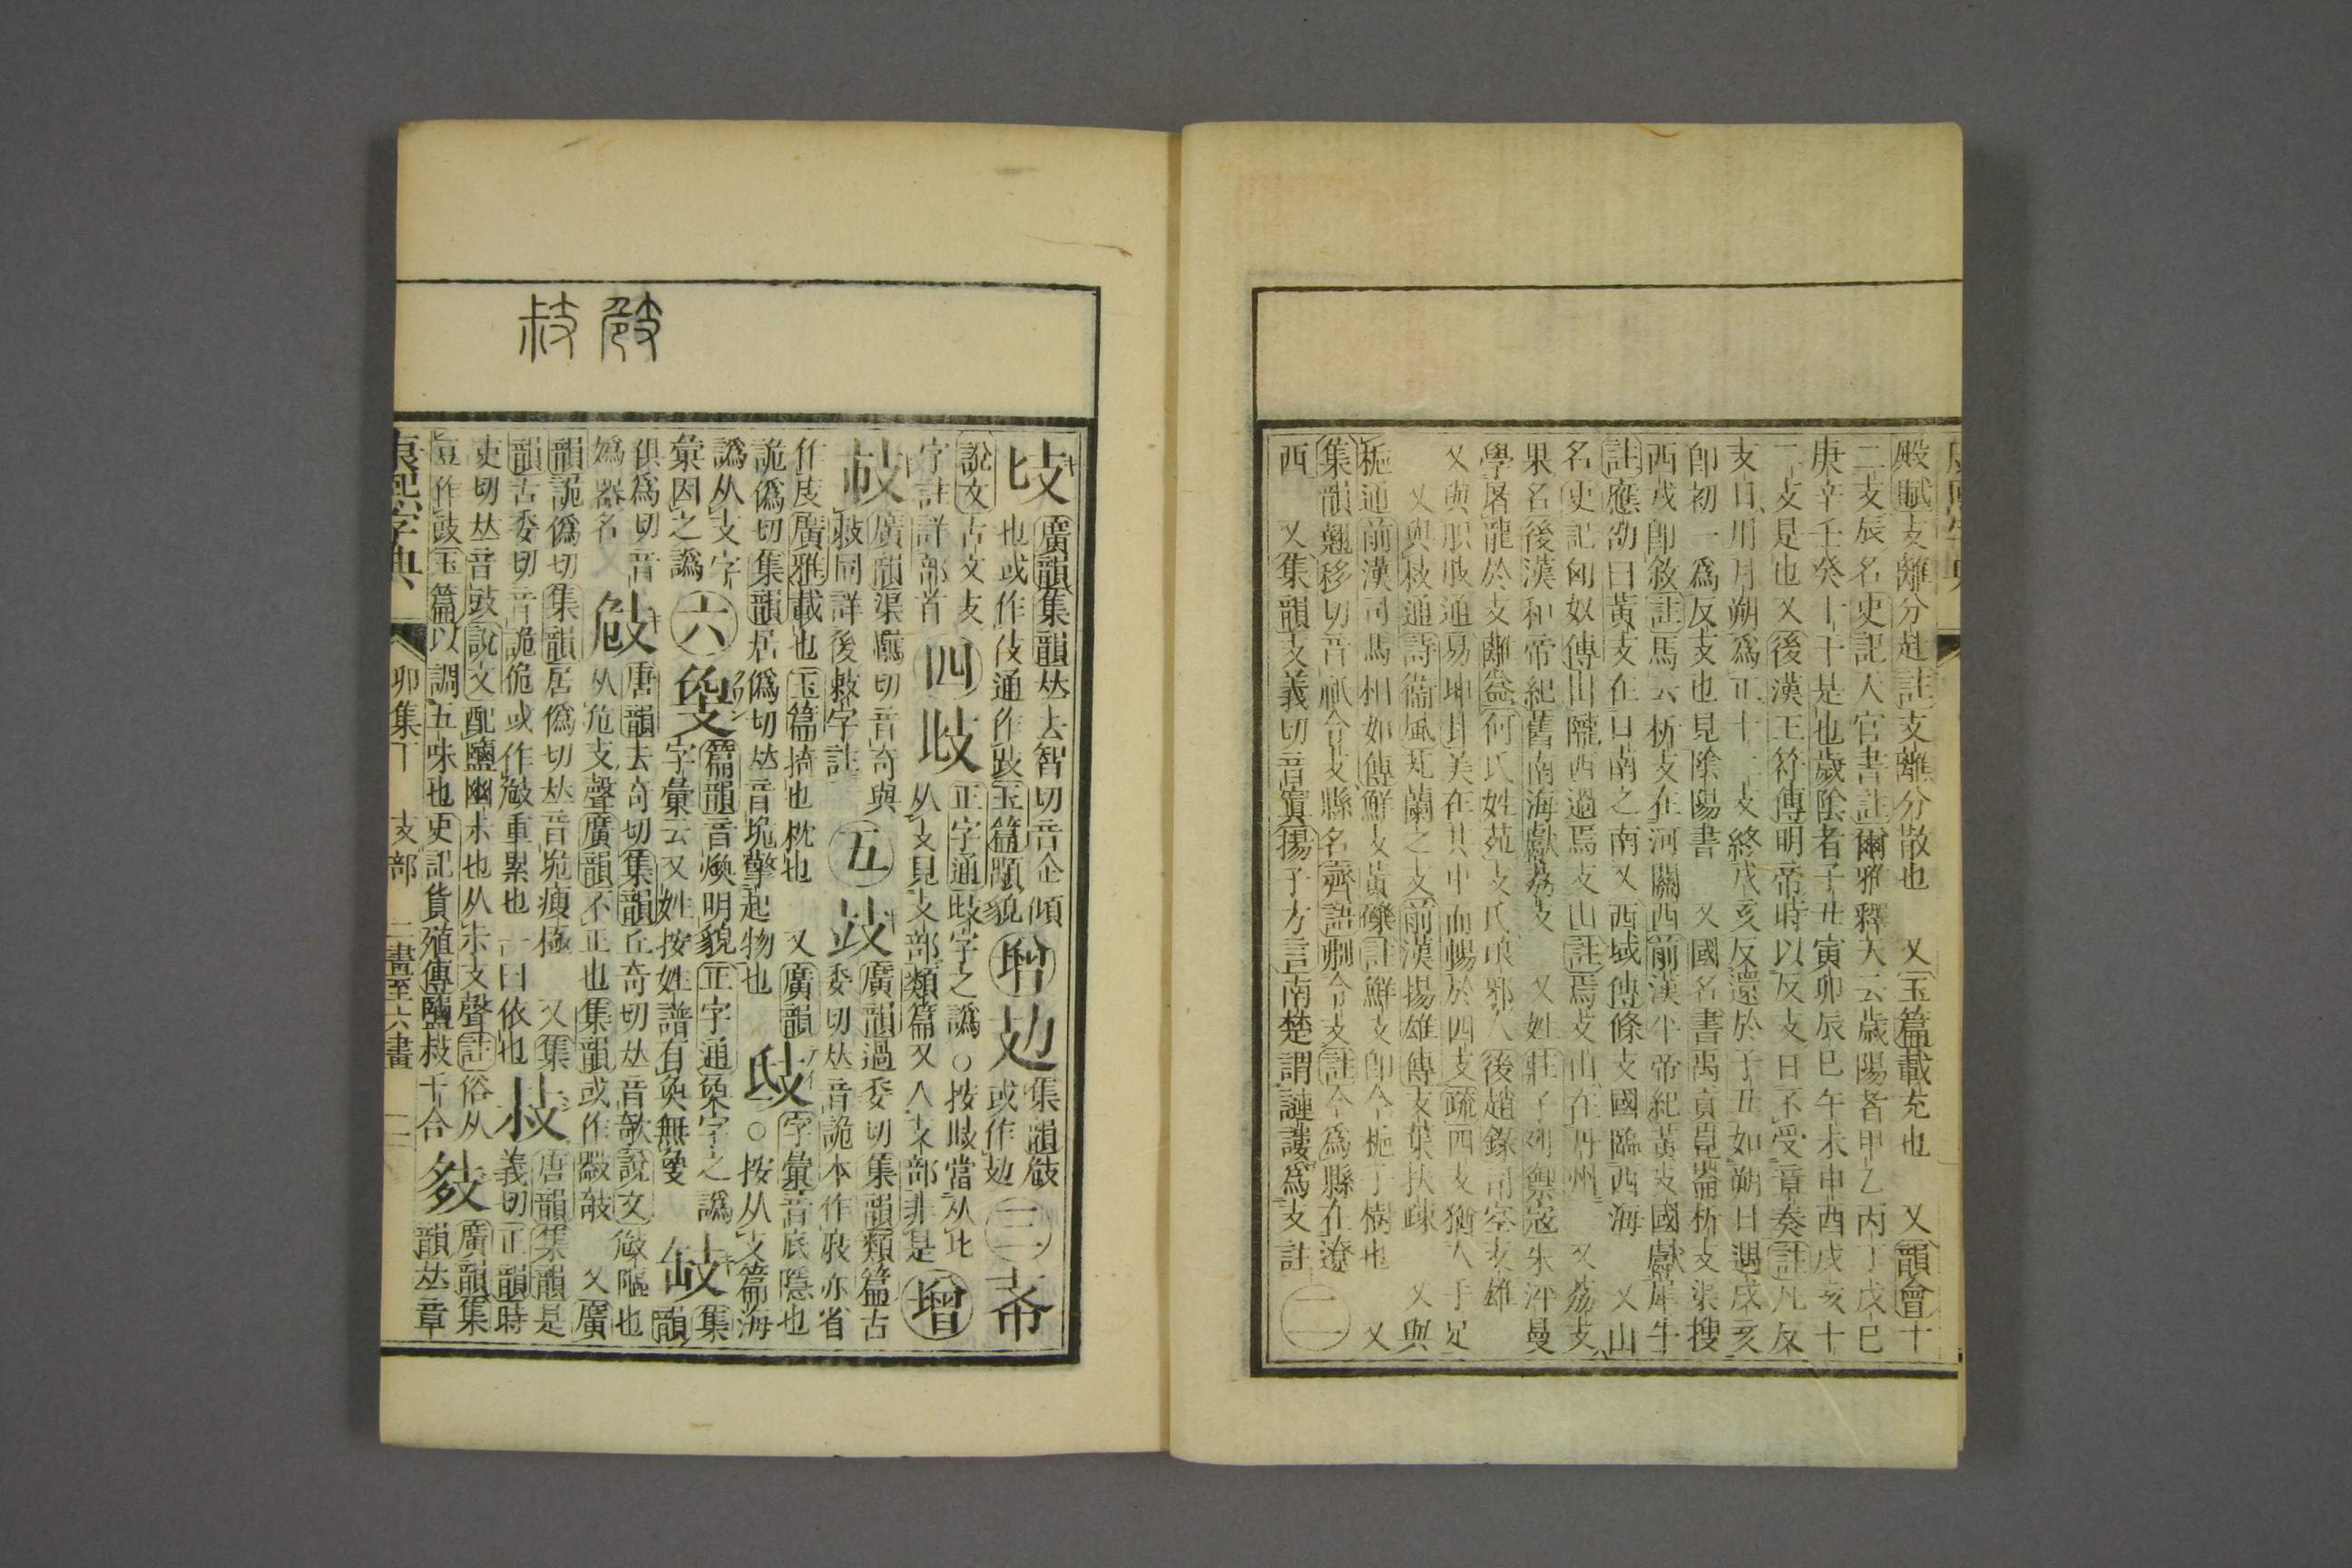 康熙字典
殿賦支離分赴註支離分散也 又玉篇載充也 又韻會十
二支辰名史記天官書註爾雅釋天云歲陽者甲乙丙丁戊巳
庚辛壬癸十干是也歲陰者子丑寅卯辰巳午未申酉戌亥十
二支是也又後漢王符傳明帝時以反支日不受章奏註凡反
支日用月朔爲正十二支終戌亥反還於子丑如朔日遇戌亥
卽初一爲反支也見陰陽書 又國名書禹貢崑崙析支渠搜
西戎卽敘註馬云析支在河關西前漢平帝紀黃支國獻犀牛
註應劭曰黃支在日南之南又西域傳條支國臨西海 又山
名史記匈奴傳出隴西過焉支山註焉支山在丹州 又荔支
果名後漢和帝紀舊南海獻荔支 又姓莊子列禦寇朱泙曼
學屠龍於支離益何氏姓苑支氏琅邪人後趙錄司空支雄
又與胑肢通易坤卦美在其中而暢於四支疏四支猶人手足
又與枝通詩衞風芄蘭之支前漢揚雄傳支葉扶疎 又與
梔通前漢司馬相如傳鮮支黃礫註鮮支卽今梔子樹也 又
集韻翹移切音祇令支縣名齊語刜令支註今爲縣在遼
西 又集韻支義切音寘揚子方言南楚謂謰謱爲支註 二
攱 𢻺
𠦝 廣韻集韻𠀤去智切音企傾
也或作伎通作跂玉篇頤貌 增 攰 集韻㩻
或作攰 三 𢺵
說文古文支
字註詳部首 四 歧 正字通歧字之譌○按歧當从止
从支見支部類篇又入支部非是 增
攲 廣韻渠羈切音奇與
敧同詳後敧字註 五 𢻃 廣韻過委切集韻類篇古
委切𠀤音詭本作㩻亦省
作庋廣雅載也玉篇掎也枕也 又廣韻
詭僞切集韻居僞切𠀤音垝擎起物也 𢻄 字彙音底隱也
○按从支篇海
譌从攴字
彙因之譌 六 㪱 篇韻音煥明貌正字通奐字之譌
字彙云又姓按姓譜有奐無㪱 𢻇 集韻
俱爲切音
嬀器名 攱 唐韻去奇切集韻丘奇切𠀤音欹說文㩻𨻶也
从危支聲廣韻不正也集韻或作敧𢻪 又廣
韻詭僞切集韻居僞切𠀤音垝痩極 又集
韻古委切音詭佹或作㩻重累也一曰依也 𢻃 唐韻集韻是
義切正韻時
吏切𠀤音豉說文配鹽幽尗也从尗支聲註俗从
豆作豉玉篇以調五味也史記貨殖傳鹽𢻃千合 㩼 廣韻集
韻𠀤章
康熙字典 卯集下 支部 二畫至六畫 二